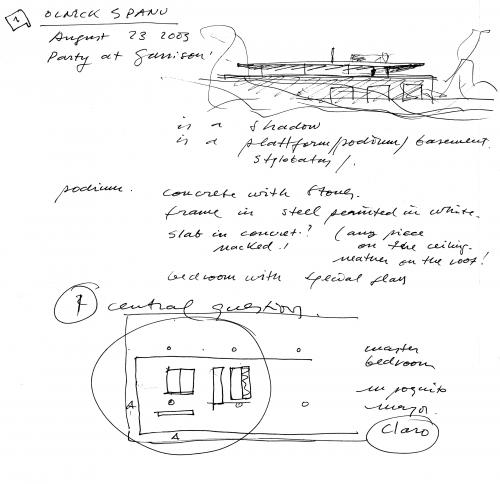 1 OLNICK SPANU
August 23 2003
Party at Garrison'
is a shadow
is a plattform/podium/basement.
stylobatos/.
podium. concrete with stones.
frame in steel painted in white.
slab in concret? (any piece
nacked.! on the ceiling.
neather on the roof!
bedroom with special glass
central question.
master
bedroom
un poquito
mayor.
Claro